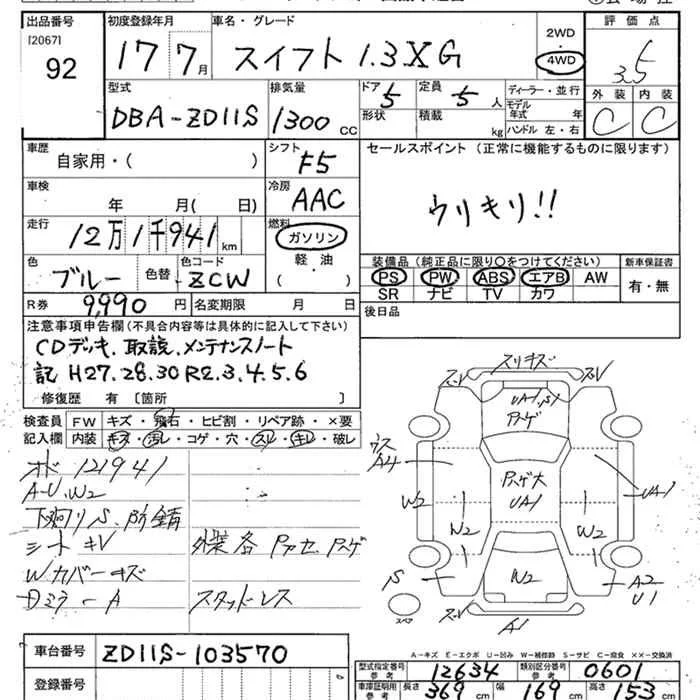 出品番号 初度登録年月 車名・グレード 2WD 評価点
[2067] 92 17 7月 スイフト 1.3XG 4WD 3.5
型式 排気量 ドア 定員 ディーラー・並行 外装 内装
DBA-ZD11S 1300cc 5 5人 モデル年式 年 C C
形状 積載 kg ハンドル 左・右
車歴 シフト セールスポイント (正常に機能するものに限ります)
自家用・( ) F5
車検 冷房 ウリキリ!!
年 月( 日) AAC
走行 燃料
12万1千941km ガソリン
色 色替 色コード 軽・油 装備品 (純正品に限り○をつけてください) 新車保証書
ブルー ZCW ( ) PS PW ABS エアB AW 有・無
SR ナビ TV カワ
R券 9,990円 名変期限 月 日 後日品
注意事項申告欄(不具合内容等は具体的に記入して下さい)
CDデッキ、取説、メンテナンスノート
記 H27.28.30 R2.3.4.5.6
修復歴 有 [箇所
検査員記入欄 FW キズ・飛石・ヒビ割・リペア跡・×要
内装 キズ・汚レ・コゲ・穴・スレ・キレ・破レ
121941
A-U、W2
下廻りS、防錆
シート キレ
Wカバーキズ
Dミラ-A スタッドレス
スリキズ
UA1
A4
W2 W2 W2 W2
UA1 UA1
S
W2
A2
U1
A1
スペア
A-キズ E-エクボ U-凹み W-補修跡 S-サビ C-腐食 XX-交換済
車台番号 ZD11S-103570
登録番号
型式指定番号 参考 12634 類別区分番号 参考 0601
車庫証明用 参考 長さ 369cm 幅 169cm 高さ 153cm